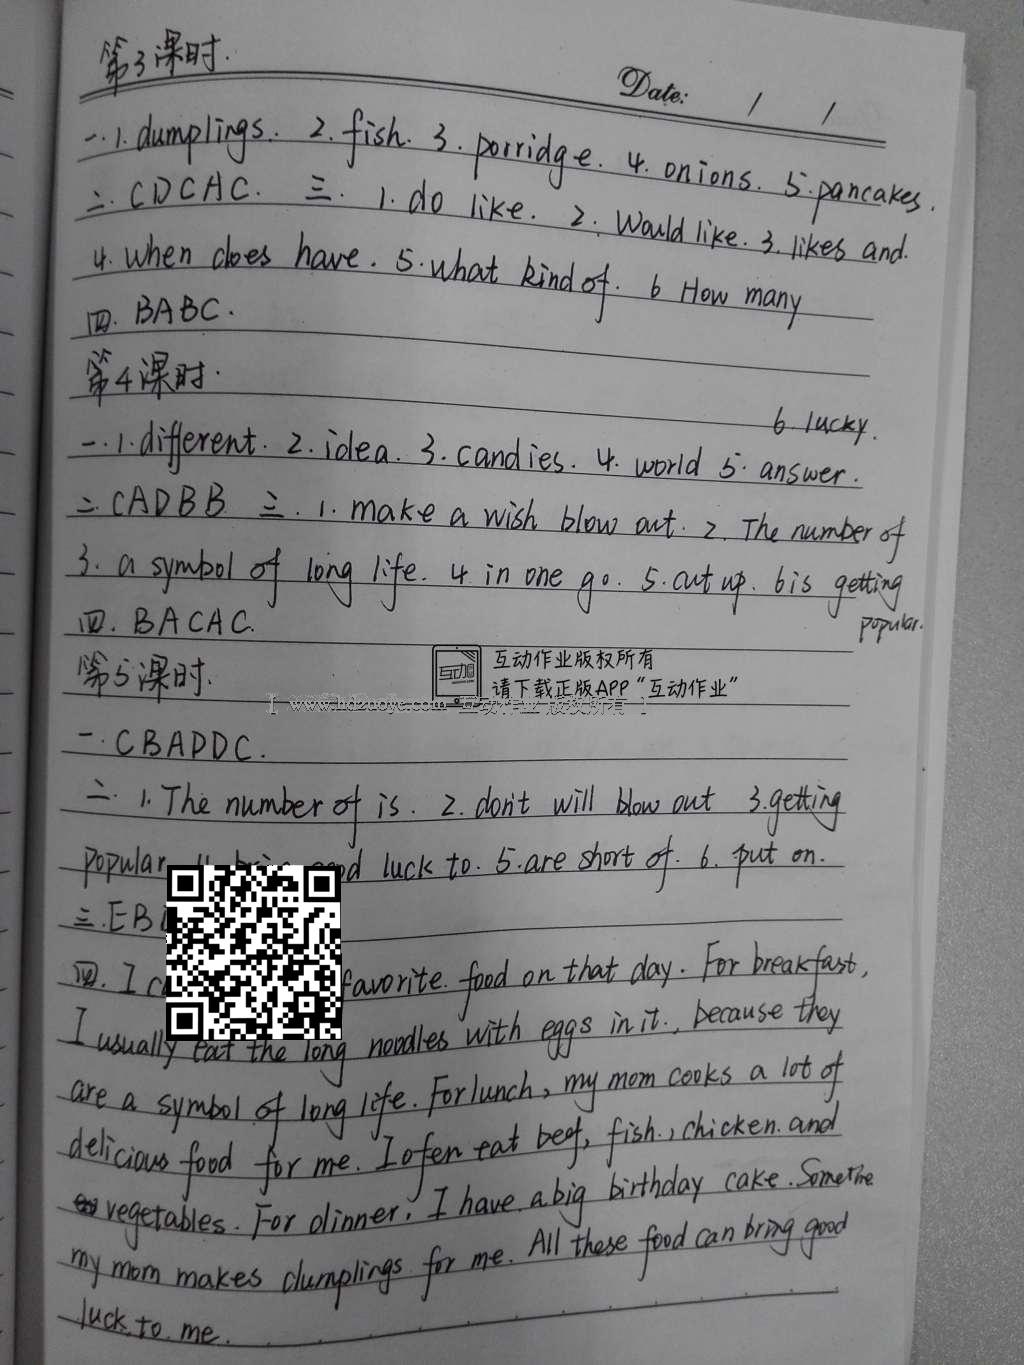 第3课时.
Date: / /
一.1.dumplings. 2.fish. 3.porridge. 4.onions. 5.pancakes.
二.CDCAC. 三. 1.do like. 2.Would like. 3.likes and.
4.When does have. 5.what kind of. 6 How many
四.BABC.
第4课时.
6.lucky.
一.1.different. 2.idea. 3.candies. 4.world 5.answer.
二.CADBB 三.1.make a wish blow out. 2.The number of
3.a symbol of long life. 4 in one go. 5.cut up. 6 is getting
popular.
四.BACAC.
第5课时.
互动作业版权所有
请下载正版APP“互动作业”
【 www.hdzuoye.com 互动作业 版权所有 】
一.CBADDC.
二.1.The number of is. 2.don't will blow out 3.getting
popular luck to. 5.are short of. 6.put on.
三.EB
四.I favorite food on that day. For breakfast,
I usually eat the long noodles with eggs in it., because they
are a symbol of long life. For lunch, my mom cooks a lot of
delicious food for me. I ofen eat beef, fish., chicken and
vegetables. For dinner, I have a big birthday cake.
my mom makes dumplings for me. All these food can bring good
luck to me.